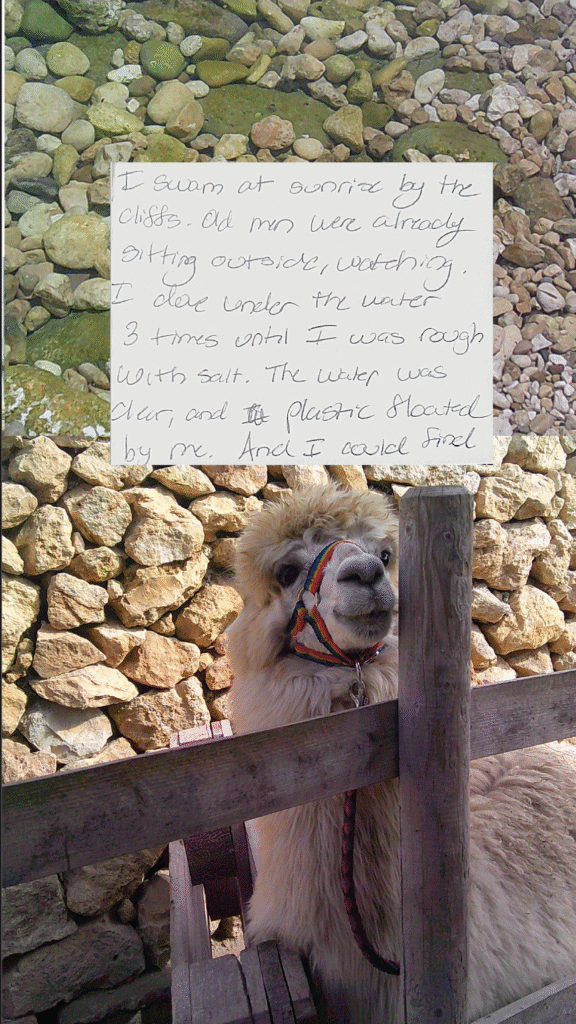 I swam at sunrise by the
cliffs. Old men were already
sitting outside, watching.
I dove under the water
3 times until I was rough
with salt. The water was
clear, and plastic floated
by me. And I could find